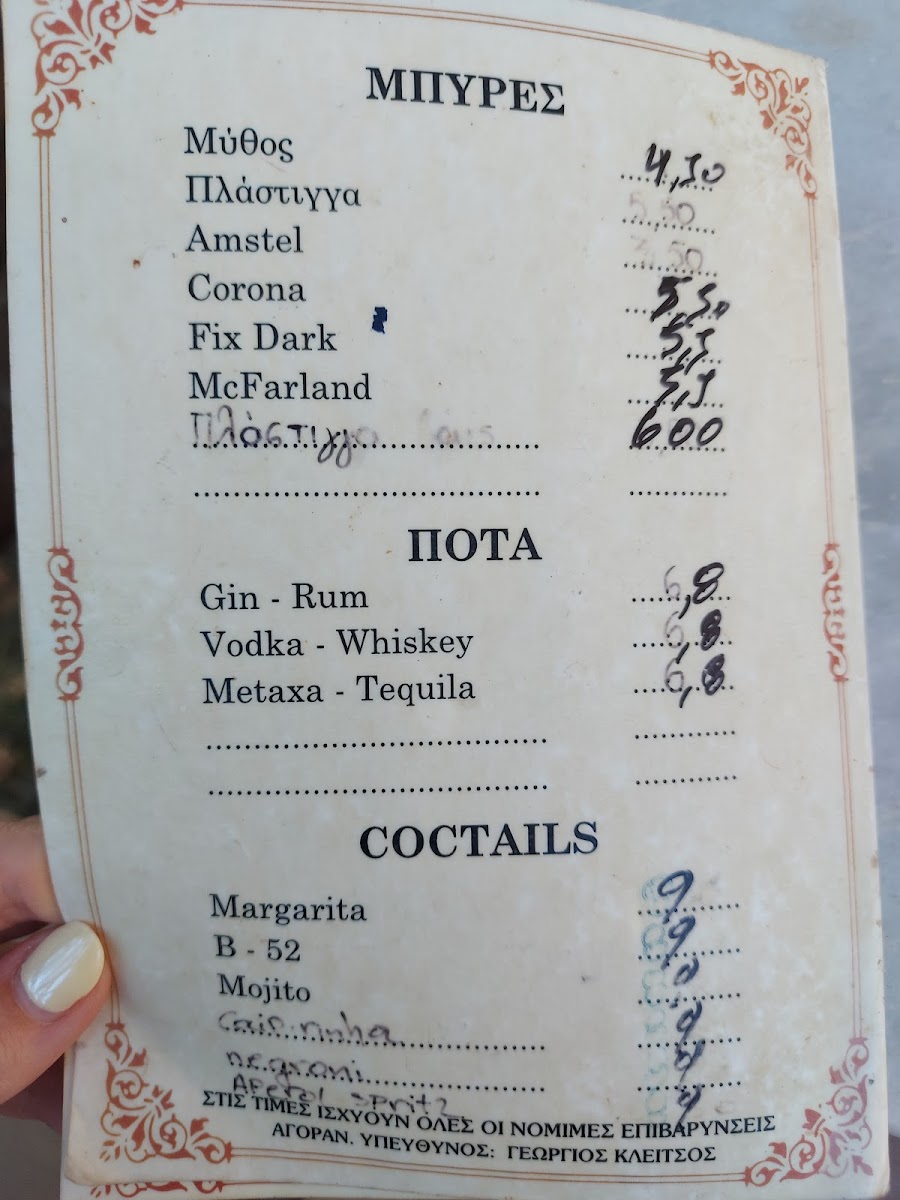 ΜΠΥΡΕΣ
Μύθος 4,30
Πλάστιγγα 5,50
Amstel 3,50
Corona 5,30
Fix Dark 5,3
McFarland 5,3
Πλάστιγγα 600
ΠΟΤΑ
Gin - Rum 6,8
Vodka - Whiskey 6,8
Metaxa - Tequila 6,8
COCTAILS
Margarita 9
B - 52 9
Mojito 9
Caipirinha 9
negroni 9
Aperol spritz 9
ΣΤΙΣ ΤΙΜΕΣ ΙΣΧΥΟΥΝ ΟΛΕΣ ΟΙ ΝΟΜΙΜΕΣ ΕΠΙΒΑΡΥΝΣΕΙΣ
ΑΓΟΡΑΝ. ΥΠΕΥΘΥΝΟΣ: ΓΕΩΡΓΙΟΣ ΚΛΕΙΤΣΟΣ